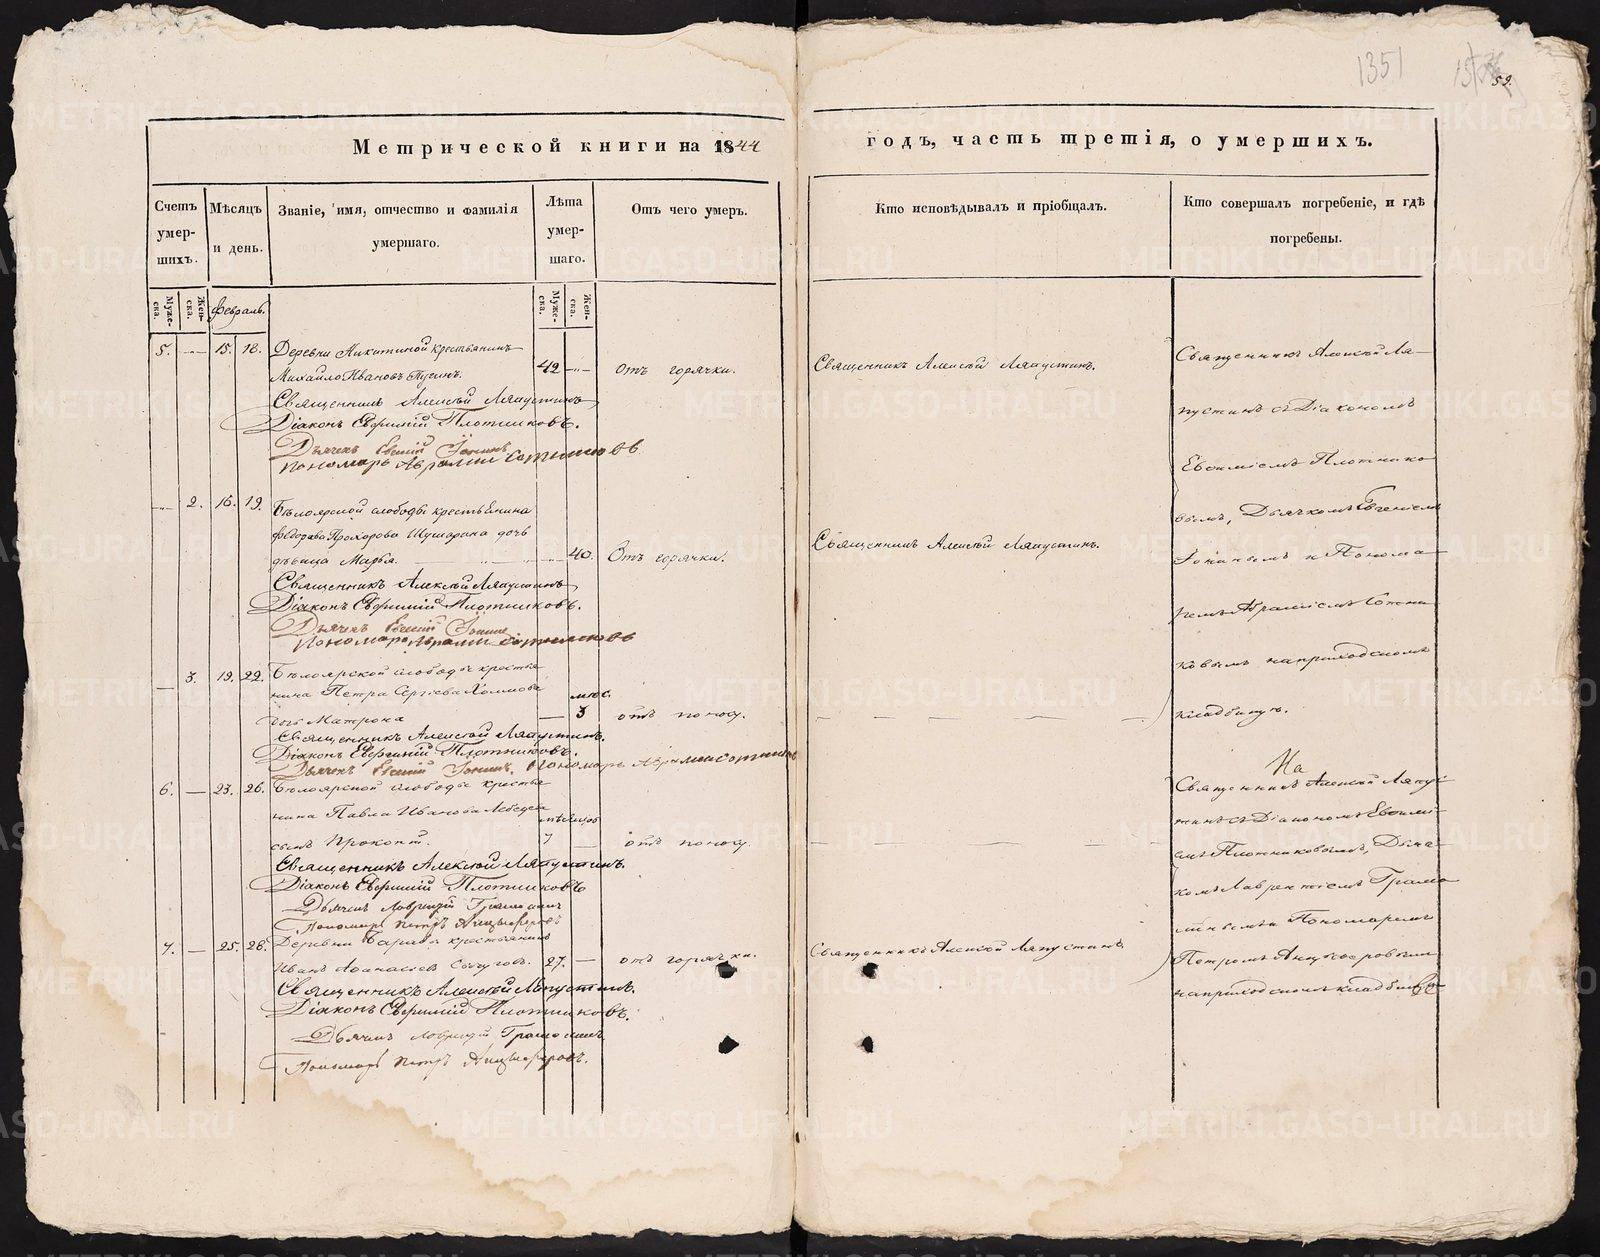 1351
59.
Метрической книги на 1844
годъ, часть третія, о умершихъ.
Счетъ умер-шихъ.
Мѣсяцъ и день.
Званіе, имя, отчество и фамилія умершаго.
Лѣта умер-шаго.
Отъ чего умеръ.
Кто исповѣдывалъ и пріобщалъ.
Кто совершалъ погребеніе, и гдѣ погребены.
Муже-ска.
Жен-ска.
Февраль.
Муже-ска.
Жен-ска.
5. 15. 18. Деревни Никитиной крестьянинъ
Михайло Ивановъ 42 Отъ горячки.
Священникъ Алексѣй Ляпустинъ.
Священникъ Алексѣй Ляпустинъ
Діаконъ Евфимій Плотниковъ.
Дьячекъ Евгеній Іонинъ
Пономарь Авраамій Сотниковъ
2. 16. 19. Бѣлоярской слободы крестьянина
Федора Прохорова Шушарина дочь
дѣвица Марья. 40. Отъ горячки.
Священникъ Алексѣй Ляпустинъ.
Священникъ Алексѣй Ляпустинъ
Діаконъ Евфимій Плотниковъ.
Дьячекъ Евгеній Іонинъ
Пономарь Авраамій Сотниковъ
3. 19. 22. Бѣлоярской слободы крестья
нина Петра Сергіева мѣс.
дочь Матрона 3 отъ поносу.
Священникъ Алексѣй Ляпустинъ.
Діаконъ Евфимій Плотниковъ.
Дьячекъ Евгеній Іонинъ. Пономарь Авраамій Сотников
6. 23. 26. Бѣлоярской слободы крестья
нина Павла Иванова мѣсяцов
сынъ Прокопій. 7 отъ поносу.
Священникъ Алексѣй Ляпустинъ.
Діаконъ Евфимій Плотниковъ
Дьячекъ Лаврентій
Пономарь Петръ Анцыферовъ
7. 25. 28. Деревни крестьянинъ
Иванъ Афанасьевъ 27. отъ горячки.
Священникъ Алексѣй Ляпустинъ
Священникъ Алексѣй Ляпустинъ.
Діаконъ Евфимій Плотниковъ.
Дьячекъ Лаврентій
Пономарь Петръ Анцыферовъ.
Священникъ Алексѣй Ля-
пустинъ съ Діакономъ
Евфиміемъ Плотнико
вымъ, Дьячкомъ Евгеніемъ
Іонинымъ и Понома
ремъ Авраміемъ Сотни
ковымъ на приходскомъ
кладбищѣ.
На
Священникъ Алексѣй Ляпус
тинъ съ Діакономъ Евфимі-
емъ Плотниковымъ, Дьяч-
комъ Лаврентіемъ
и Пономаремъ
Петромъ Анцыферовымъ
на приходскомъ кладбищѣ
METRIKI.GASO-URAL.RU